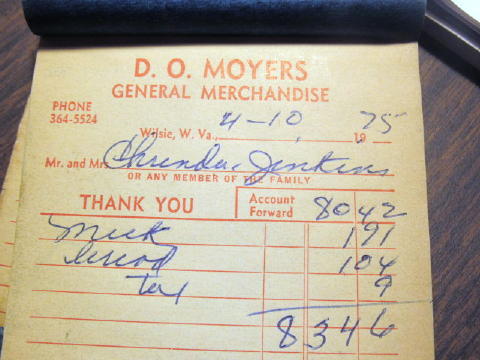 D. O. MOYERS
GENERAL MERCHANDISE
PHONE
364-5524
Wilsie, W. Va., 4-10 1975
Mr. and Mrs. Jenkins
OR ANY MEMBER OF THE FAMILY
THANK YOU Account Forward 80 42
191
104
tax 9
83 46